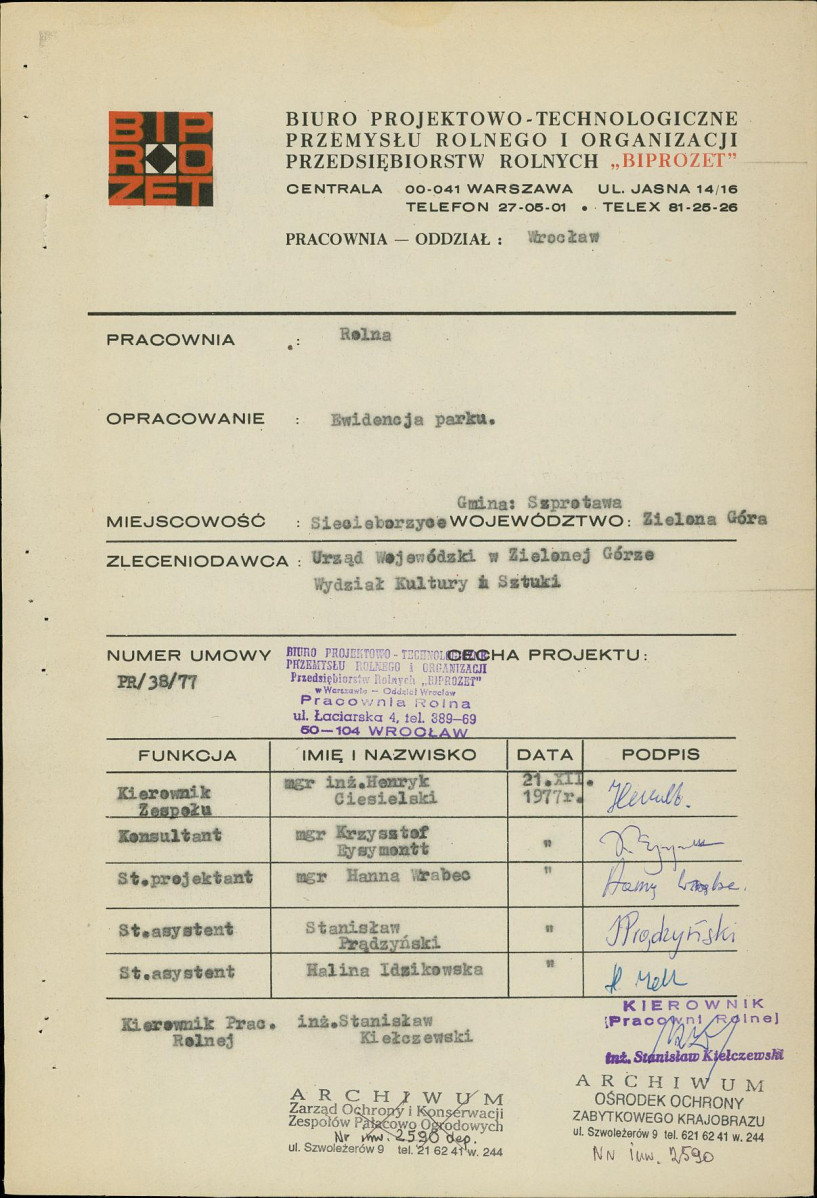 BIP
RO
ZET
BIURO PROJEKTOWO-TECHNOLOGICZNE
PRZEMYSŁU ROLNEGO I ORGANIZACJI
PRZEDSIĘBIORSTW ROLNYCH „BIPROZET”
CENTRALA 00-041 WARSZAWA UL. JASNA 14/16
TELEFON 27-05-01 • TELEX 81-25-26
PRACOWNIA — ODDZIAŁ : Wrocław
PRACOWNIA : Rolna
OPRACOWANIE : Ewidencja parku.
Gmina: Szprotawa
MIEJSCOWOŚĆ : Siecieborzyce WOJEWÓDZTWO: Zielona Góra
ZLECENIODAWCA : Urząd Wojewódzki w Zielonej Górze
Wydział Kultury i Sztuki
NUMER UMOWY CECHA PROJEKTU:
PR/38/77
BIURO PROJEKTOWO-TECHNOLOGICZNE
PRZEMYSŁU ROLNEGO i ORGANIZACJI
Przedsiębiorstw Rolnych „BIPROZET”
w Warszawie — Oddział Wrocław
Pracownia Rolna
ul. Łaciarska 4, tel. 389—69
50—104 WROCŁAW
FUNKCJA IMIĘ I NAZWISKO DATA PODPIS
Kierownik mgr inż.Henryk 21.XII.
Zespołu Ciesielski 1977r.
Konsultant mgr Krzysztof "
Eysymontt
St.projektant mgr Hanna Wrabec "
St.asystent Stanisław "
Prądzyński Prądzyński
St.asystent Halina Idzikowska "
Kierownik Prac. inż.Stanisław
Rolnej Kiełczewski
KIEROWNIK
[Pracowni Rolnej]
inż. Stanisław Kiełczewski
ARCHIWUM
Zarząd Ochrony i Konserwacji
Zespołów Pałacowo Ogrodowych
Nr inw. 2590 dep.
ul. Szwoleżerów 9 tel. 21 62 41 w. 244
ARCHIWUM
OŚRODEK OCHRONY
ZABYTKOWEGO KRAJOBRAZU
ul. Szwoleżerów 9 tel. 621 62 41 w. 244
NN inw. 2590